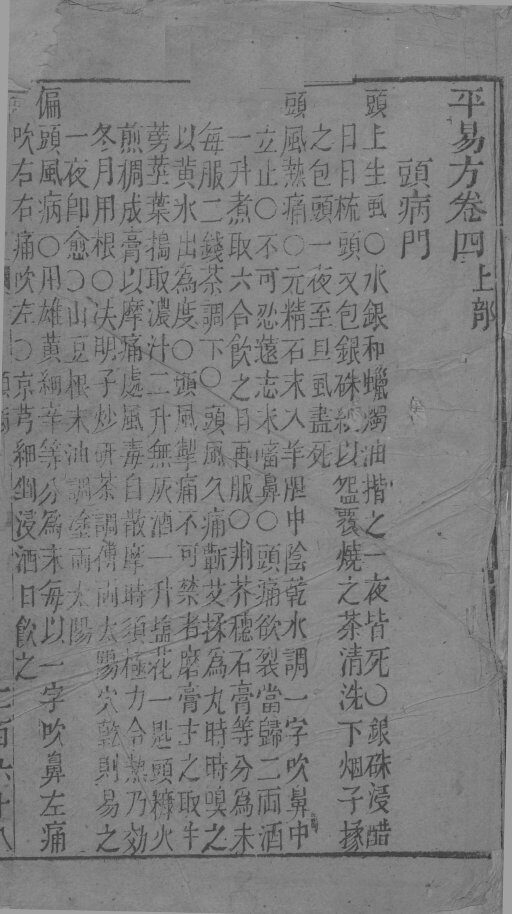 平易方卷四上部
頭病門
頭上生虱○水銀和蠟濁油揩之一夜皆死○銀硃浸醋
日日梳頭又包銀硃紙以盌覆燒之茶清洗下烟子揉
之包頭一夜至旦虱盡死
頭風熱痛○元精石末入羊胆中陰乾水調一字吹鼻中
立止○不可忍遠志末㗜鼻○頭痛欲裂當歸二兩酒
一升煮取六合飲之日再服○荆芥穗石膏等分為末
每服二錢茶調下○頭風久痛蘄艾揉為丸時時嗅之
以黄水出為度○頭風掣痛不可禁者磨膏主之取牛
蒡莖葉搗取濃汁二升無灰酒一升塩花一匙頭糠火
煎稠成膏以摩痛處風毒自散摩時須極力令熱乃効
冬月用根○决明子炒研茶調傅兩太陽穴乾則易之
一夜即愈○山豆根末油調塗兩太陽
偏頭風病○用雄黄細辛等分為末每以一字吹鼻左痛
吹右右痛吹左○京芎細剉浸酒日飲之